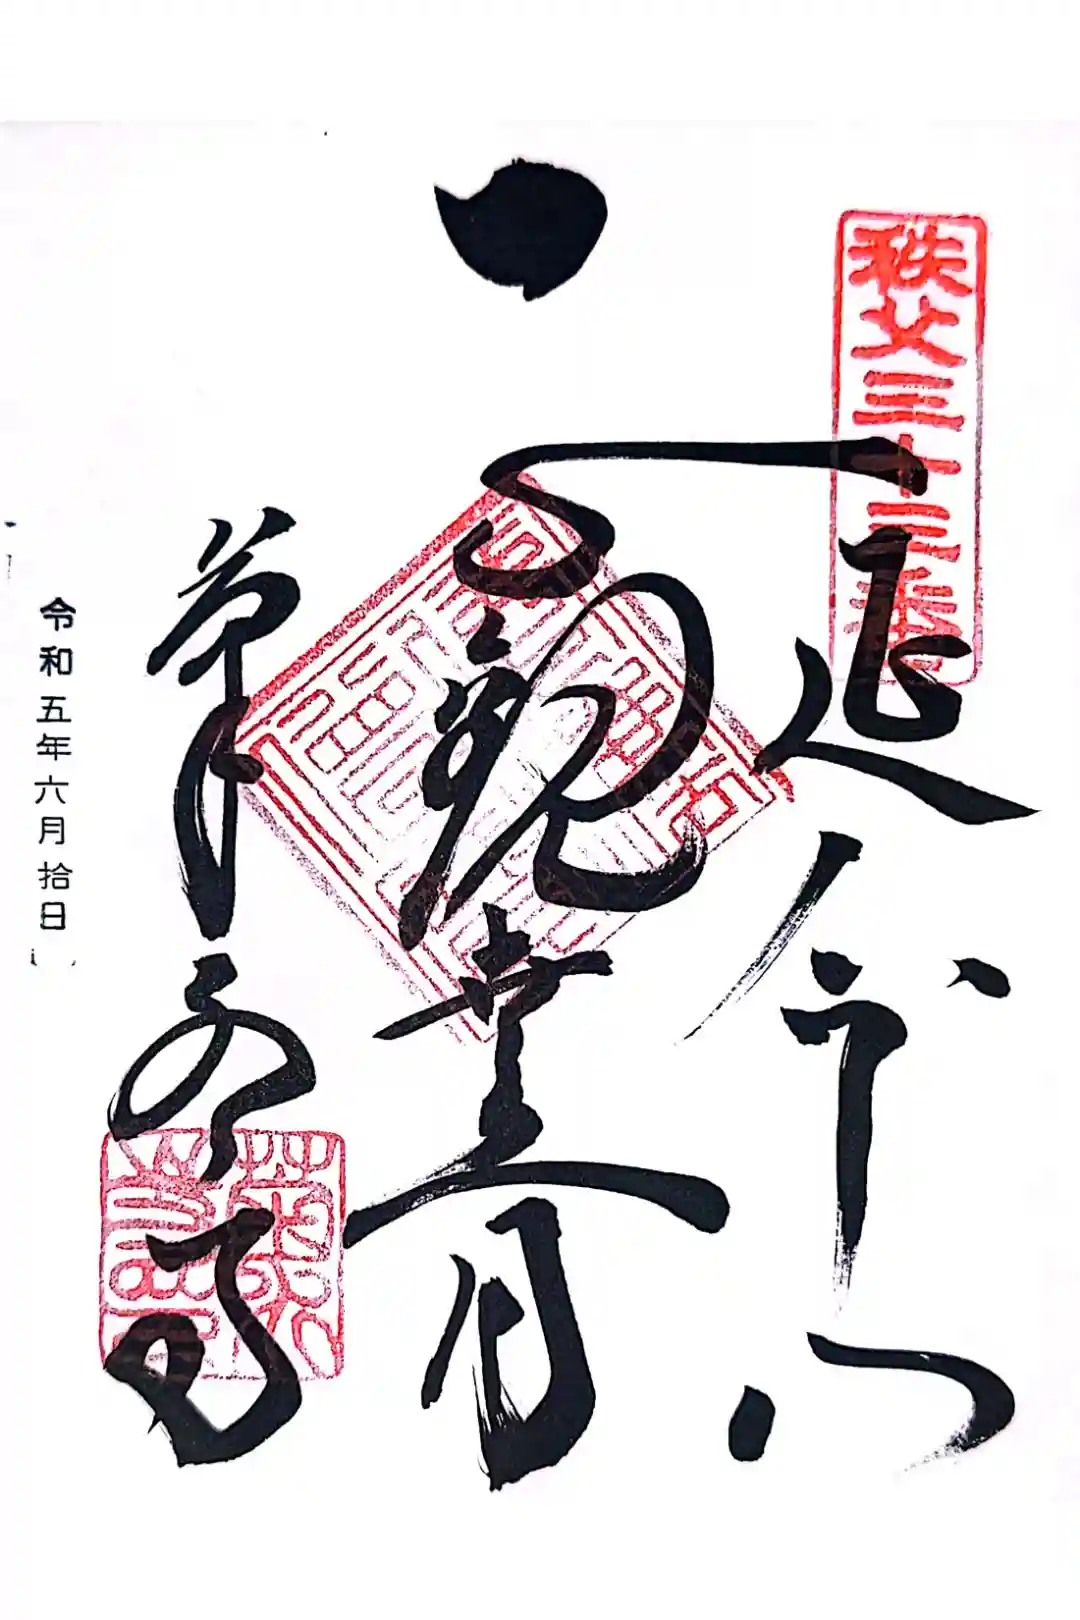 秩父三十三番
延命山
正観世音
菊水寺
令和五年六月拾日